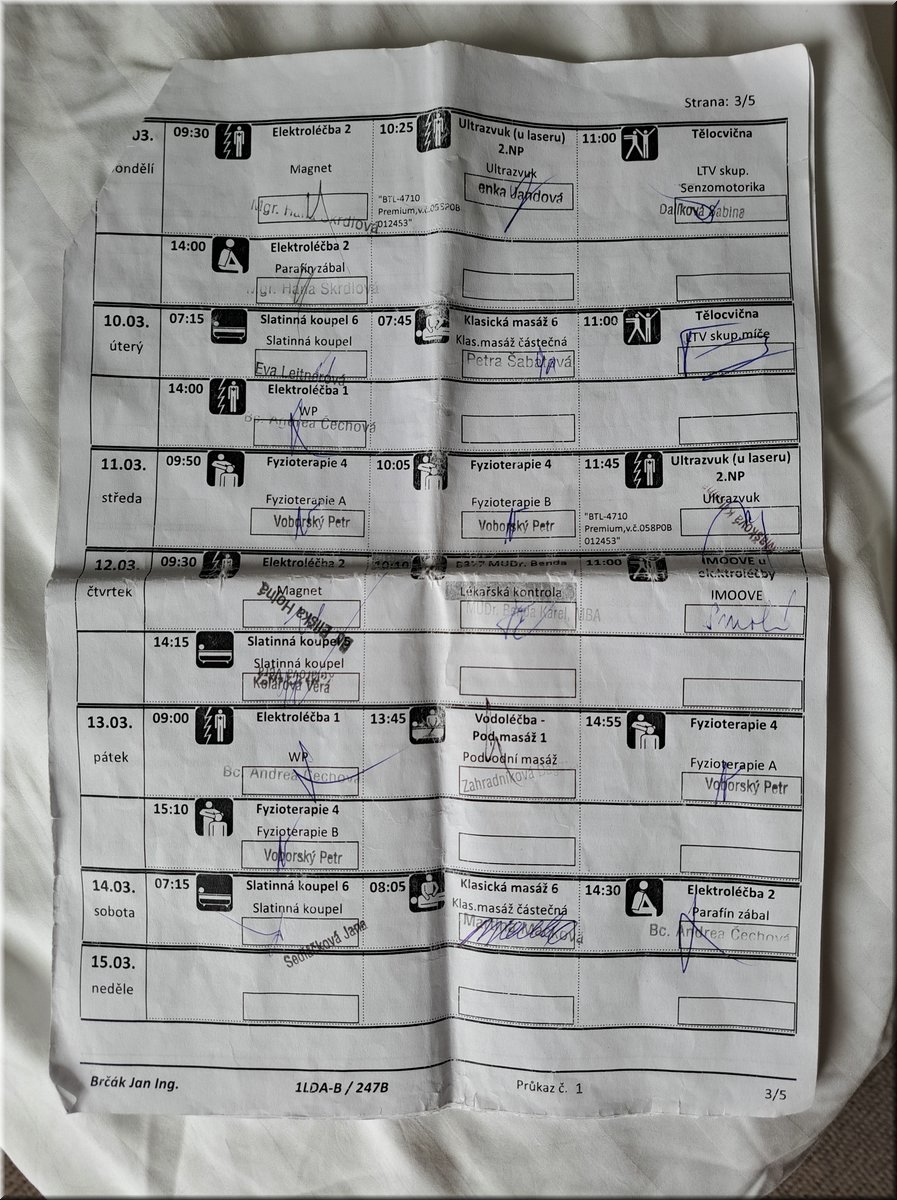 Strana: 3/5
03.
ondělí
09:30
Elektroléčba 2
Magnet
Mgr. Hana Skrdlová
10:25
Ultrazvuk (u laseru)
2.NP
Ultrazvuk
enka Jandová
"BTL-4710
Premium,v.č.058P0B
012453"
11:00
Tělocvična
LTV skup.
Senzomotorika
Dalíková Sabina
14:00
Elektroléčba 2
Parafín zábal
Mgr. Hana Skrdlová
10.03.
úterý
07:15
Slatinná koupel 6
Slatinná koupel
Eva Leitnerová
07:45
Klasická masáž 6
Klas.masáž částečná
Petra Šabatová
11:00
Tělocvična
LTV skup.míče
14:00
Elektroléčba 1
WP
Bc. Andrea Čechová
11.03.
středa
09:50
Fyzioterapie 4
Fyzioterapie A
Voborský Petr
10:05
Fyzioterapie 4
Fyzioterapie B
Voborský Petr
11:45
Ultrazvuk (u laseru)
2.NP
Ultrazvuk
"BTL-4710
Premium,v.č.058P0B
012453"
12.03.
čtvrtek
09:30
Elektroléčba 2
Magnet
Eliška Hojná
10:10
MUDr. Benda
Lékařská kontrola
MUDr. Benda Karel, MBA
11:00
IMOOVE u
elektroléčby
IMOOVE
14:15
Slatinná koupel 6
Slatinná koupel
Kolářová Věra
13.03.
pátek
09:00
Elektroléčba 1
WP
Bc. Andrea Čechová
13:45
Vodoléčba -
Pod.masáž 1
Podvodní masáž
Zahradníková
14:55
Fyzioterapie 4
Fyzioterapie A
Voborský Petr
15:10
Fyzioterapie 4
Fyzioterapie B
Voborský Petr
14.03.
sobota
07:15
Slatinná koupel 6
Slatinná koupel
Sedláčková Jana
08:05
Klasická masáž 6
Klas.masáž částečná
14:30
Elektroléčba 2
Parafín zábal
Bc. Andrea Čechová
15.03.
neděle
Brčák Jan Ing.
1LDA-B / 247B
Průkaz č. 1
3/5